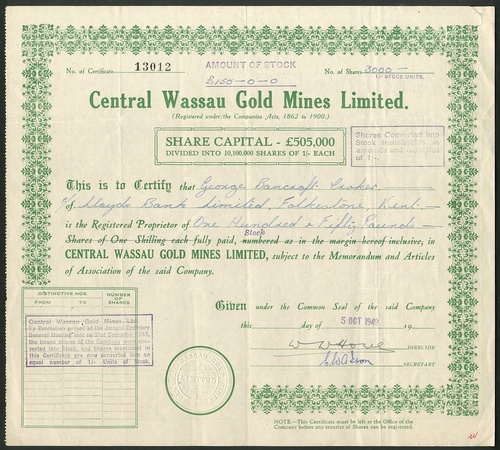 No. of Certificate 13012
AMOUNT OF STOCK
£150-0-0
No. of Shares 3000 —
1/- STOCK UNITS.
Central Wassau Gold Mines Limited.
(Registered under the Companies Acts, 1862 to 1900.)
SHARE CAPITAL - £505,000
DIVIDED INTO 10,100,000 SHARES OF 1/- EACH
Shares Converted into
Stock transferable in
amounts and multiples
of 1/-.
This is to Certify that George Bancroft
of Lloyds Bank Limited, Folkestone, Kent
is the Registered Proprietor of One Hundred & Fifty Pounds
Stock
Shares of One Shilling each fully paid, numbered as in the margin hereof inclusive, in
CENTRAL WASSAU GOLD MINES LIMITED, subject to the Memorandum and Articles
of Association of the said Company.
DISTINCTIVE NOS.
FROM TO
NUMBER OF SHARES
Central Wassau Gold Mines Ltd.
By Resolution passed at the Annual Ordinary
General Meeting held on 31st
the issued shares of the Company were con-
verted into Stock, and Shares mentioned in
this Certificate are now converted into an
equal number of 1/- Units of Stock.
Given under the Common Seal of the said Company
this day of 5 OCT 1949 19
DIRECTOR
SECRETARY
NOTE.—This Certificate must be left at the Office of the
Company before any transfer of Shares can be registered.